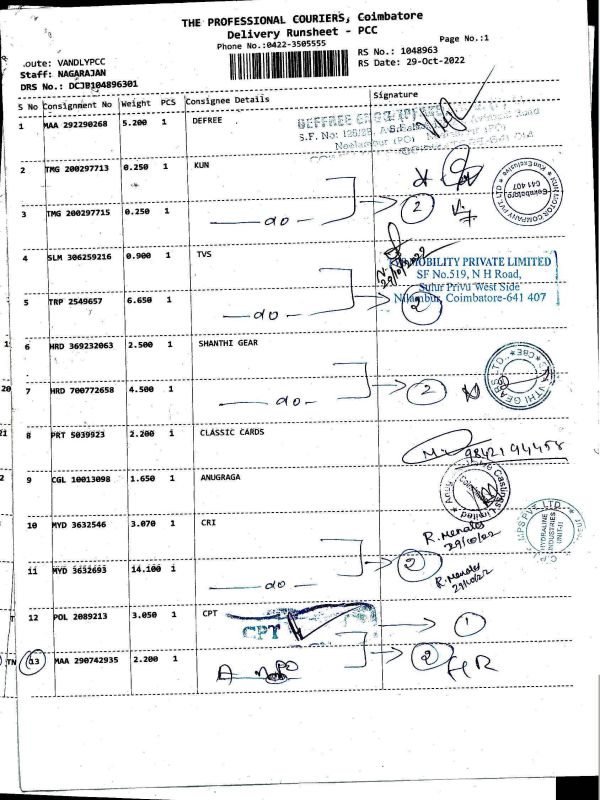 THE PROFESSIONAL COURIERS, Coimbatore
Delivery Runsheet - PCC
Phone No.:0422-3505555
Page No.:1
RS No.: 1048963
RS Date: 29-Oct-2022
oute: VANDLYPCC
Staff: NAGARAJAN
DRS No.: DCJB104896301
S No Consignment No Weight PCS Consignee Details Signature
1 MAA 292290268 5.200 1 DEFREE
2 TMG 200297713 0.250 1 KUN
3 TMG 200297715 0.250 1 do 2
KUN MOTOR COMPANY PVT LTD
Coimbatore
641 407
4 SLM 306259216 0.900 1 TVS
29/10/2022
MOBILITY PRIVATE LIMITED
SF No.519, N H Road,
Sulur Privu West Side
Nilambur, Coimbatore-641 407
5 TRP 2549657 6.650 1 do 2
6 HRD 369232063 2.500 1 SHANTHI GEAR
7 HRD 700772658 4.500 1 do 2
8 PRT 5039923 2.200 1 CLASSIC CARDS 9842194458
9 CGL 10013098 1.650 1 ANUGRAGA
10 MYD 3632546 3.070 1 CRI
R. Menaka
29/10/22
HYDRALINE
INDUSTRIES
UNIT-II
11 MYD 3632693 14.100 1 do 2
R. Menaka
29/10/22
12 POL 2089213 3.050 1 CPT 1
CPT
13 MAA 290742935 2.200 1 2 HR